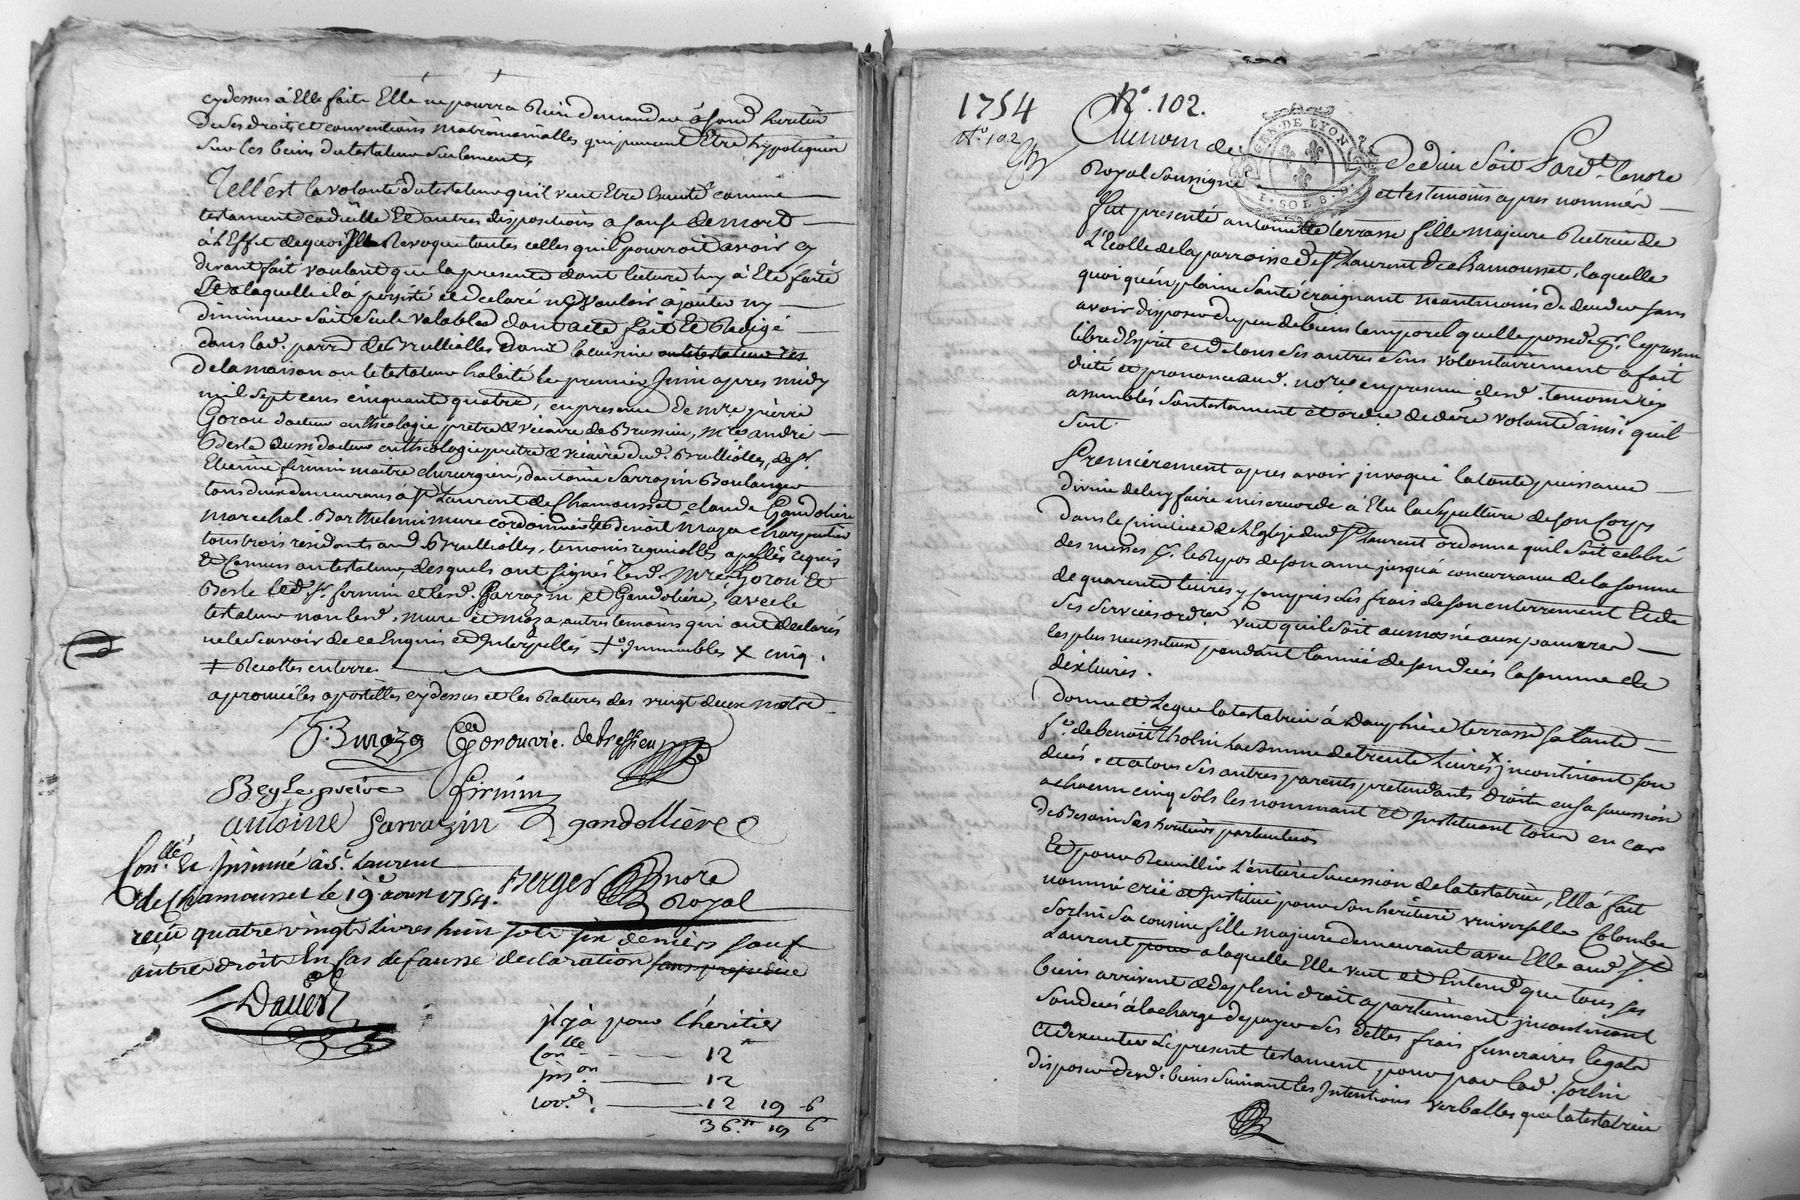 cydessus à Elle faite Elle ne pourra Rien demander à sond heritier
de ses droits et conventions matrimonialles qui puruont Etre hypotequés
sur les biens du testateur seulement
Telle est la volonté du testateur qu'il veut Etre Executé comme
testament codicille Et autres dispositions a cause de mort
à l'Effet de quoi Il Revoque toutes celles qu'il pourroit avoir cy
devant fait voulant que la presente dont lecture luy à Eté faite
Et a laquelle il à persisté et declaré n'y vouloir ajouter ny
diminuer soit seule valable dont acte fait Et Redigé
dans lad. parr. de Brullialles dans la cuisine ou le testateur
de la maison ou le testateur habite le premier Juin apres midy
mil sept cens cinquante quatre, en presence de mre pierre
Gorou docteur en theologie pretre & vicaire de Brussieu, mre andré
Besle aussi docteur en theologie pretre & vicaire dud. Brullioles, de sr.
Etienne firmin maitre chirurgien, d'antoine Sarrazin Boulanger
tous deux demeurans à St Laurent de Chamousset claude Gandoliere
marechal, Barthelemi mure cordonnier et Benoit maza charpentier
tous trois residents aud Brullioles, temoins requis appellés
& Connus au testateur, desquels ont signé lesd. Mres Gorou Et
Besle led. sr. firmin et lesd. Sarrazin et Gandoliere, avec le
testateur non lesd. mure et maza, autres temoins qui ont declarés
ne le scavoir de ce Enquis et Interpellés. +° Immeubles X cinq.
‡ Recoltes en terre
aprouvé les apostilles cydessus et les Ratures des vingt deux mots
Gorou vic. de bressieu
Besle pretre firmin
antoine Sarrazin gandollière
Con.llé et Insinué à St. Laurent
de Chamousset le 19e aoust 1754. Berger nore
Royal
reçu quatre vingt Livres huit sols six deniers sauf
autre droit En cas de fausse declaration sans prejudice
Daver
il y à pour l'heritier
Con.lle 12tt
Jns.on 12
100.e d. 12 19 6
36.tt 19 6
1754 N°. 102.
N.° 102
GEN. DE LYON
SOL 8
Au nom de Dieu soit Pard.t le nore
Royal soussigné et les temoins apres nommés
fut presenté antoinette terrasse fille majeure Retirée de
L'Ecolle de la parroisse de St Laurent de Chamousset, laquelle
quoi qu'en plaine santé craignant neantmoins de deceder sans
avoir disposer du peu de biens temporel quelle possede pr.
libre d'Esprit et de tous ses autres sens volontairement a fait
dicté et prononcé aud. nore en presence desd. temoins icy
assemblés son testament et ordre de derre. volonté ainsi quil
suit.
Premierement apres avoir jnvoqué la toute puissance
divine de luy faire misericorde à Elu la sepulture de son Corps
dans le cimetiere de l'Eglize dud St Laurent ordonne quil soit celebré
des messes pr. le Repos de son ame jusqu'à concurrance de la somme
de quarente livres y compris les frais de son enterrement Et de
ses services ordres. Veut quil soit aumosné aux pauvres
les plus necessiteux pendant l'année de son decés la somme de
dix livres.
donne et Legue la testatrice à dauphine terrasse sa tante
fe. de benoit Tholin la somme de trente Livres X jncontinant son
decés. et a tous ses autres parents pretendants droits en sa succession
a chacun cinq sols les nommant Et Jnstituant tous en cas
de Besoin ses heritiers particuliers
Et pour Recuillir L'entiere sucession de la testatrice, Ell'à fait
nommé créé et Jnstitué pour son heritiere universelle Colombe
sorlin sa cousine fille majeure demeurant avec Elle aud. St
Laurent pour a laquelle Elle veut et Entend que tous ses
biens arrivent & de plein droit apartiennent jncontinant
son decés à la charge de payer ses dettes frais funeraires legats
et d'executer le present testament pour par lad. sorlin
disposer desd. biens suivant les Jntentions verballes que la testatrice